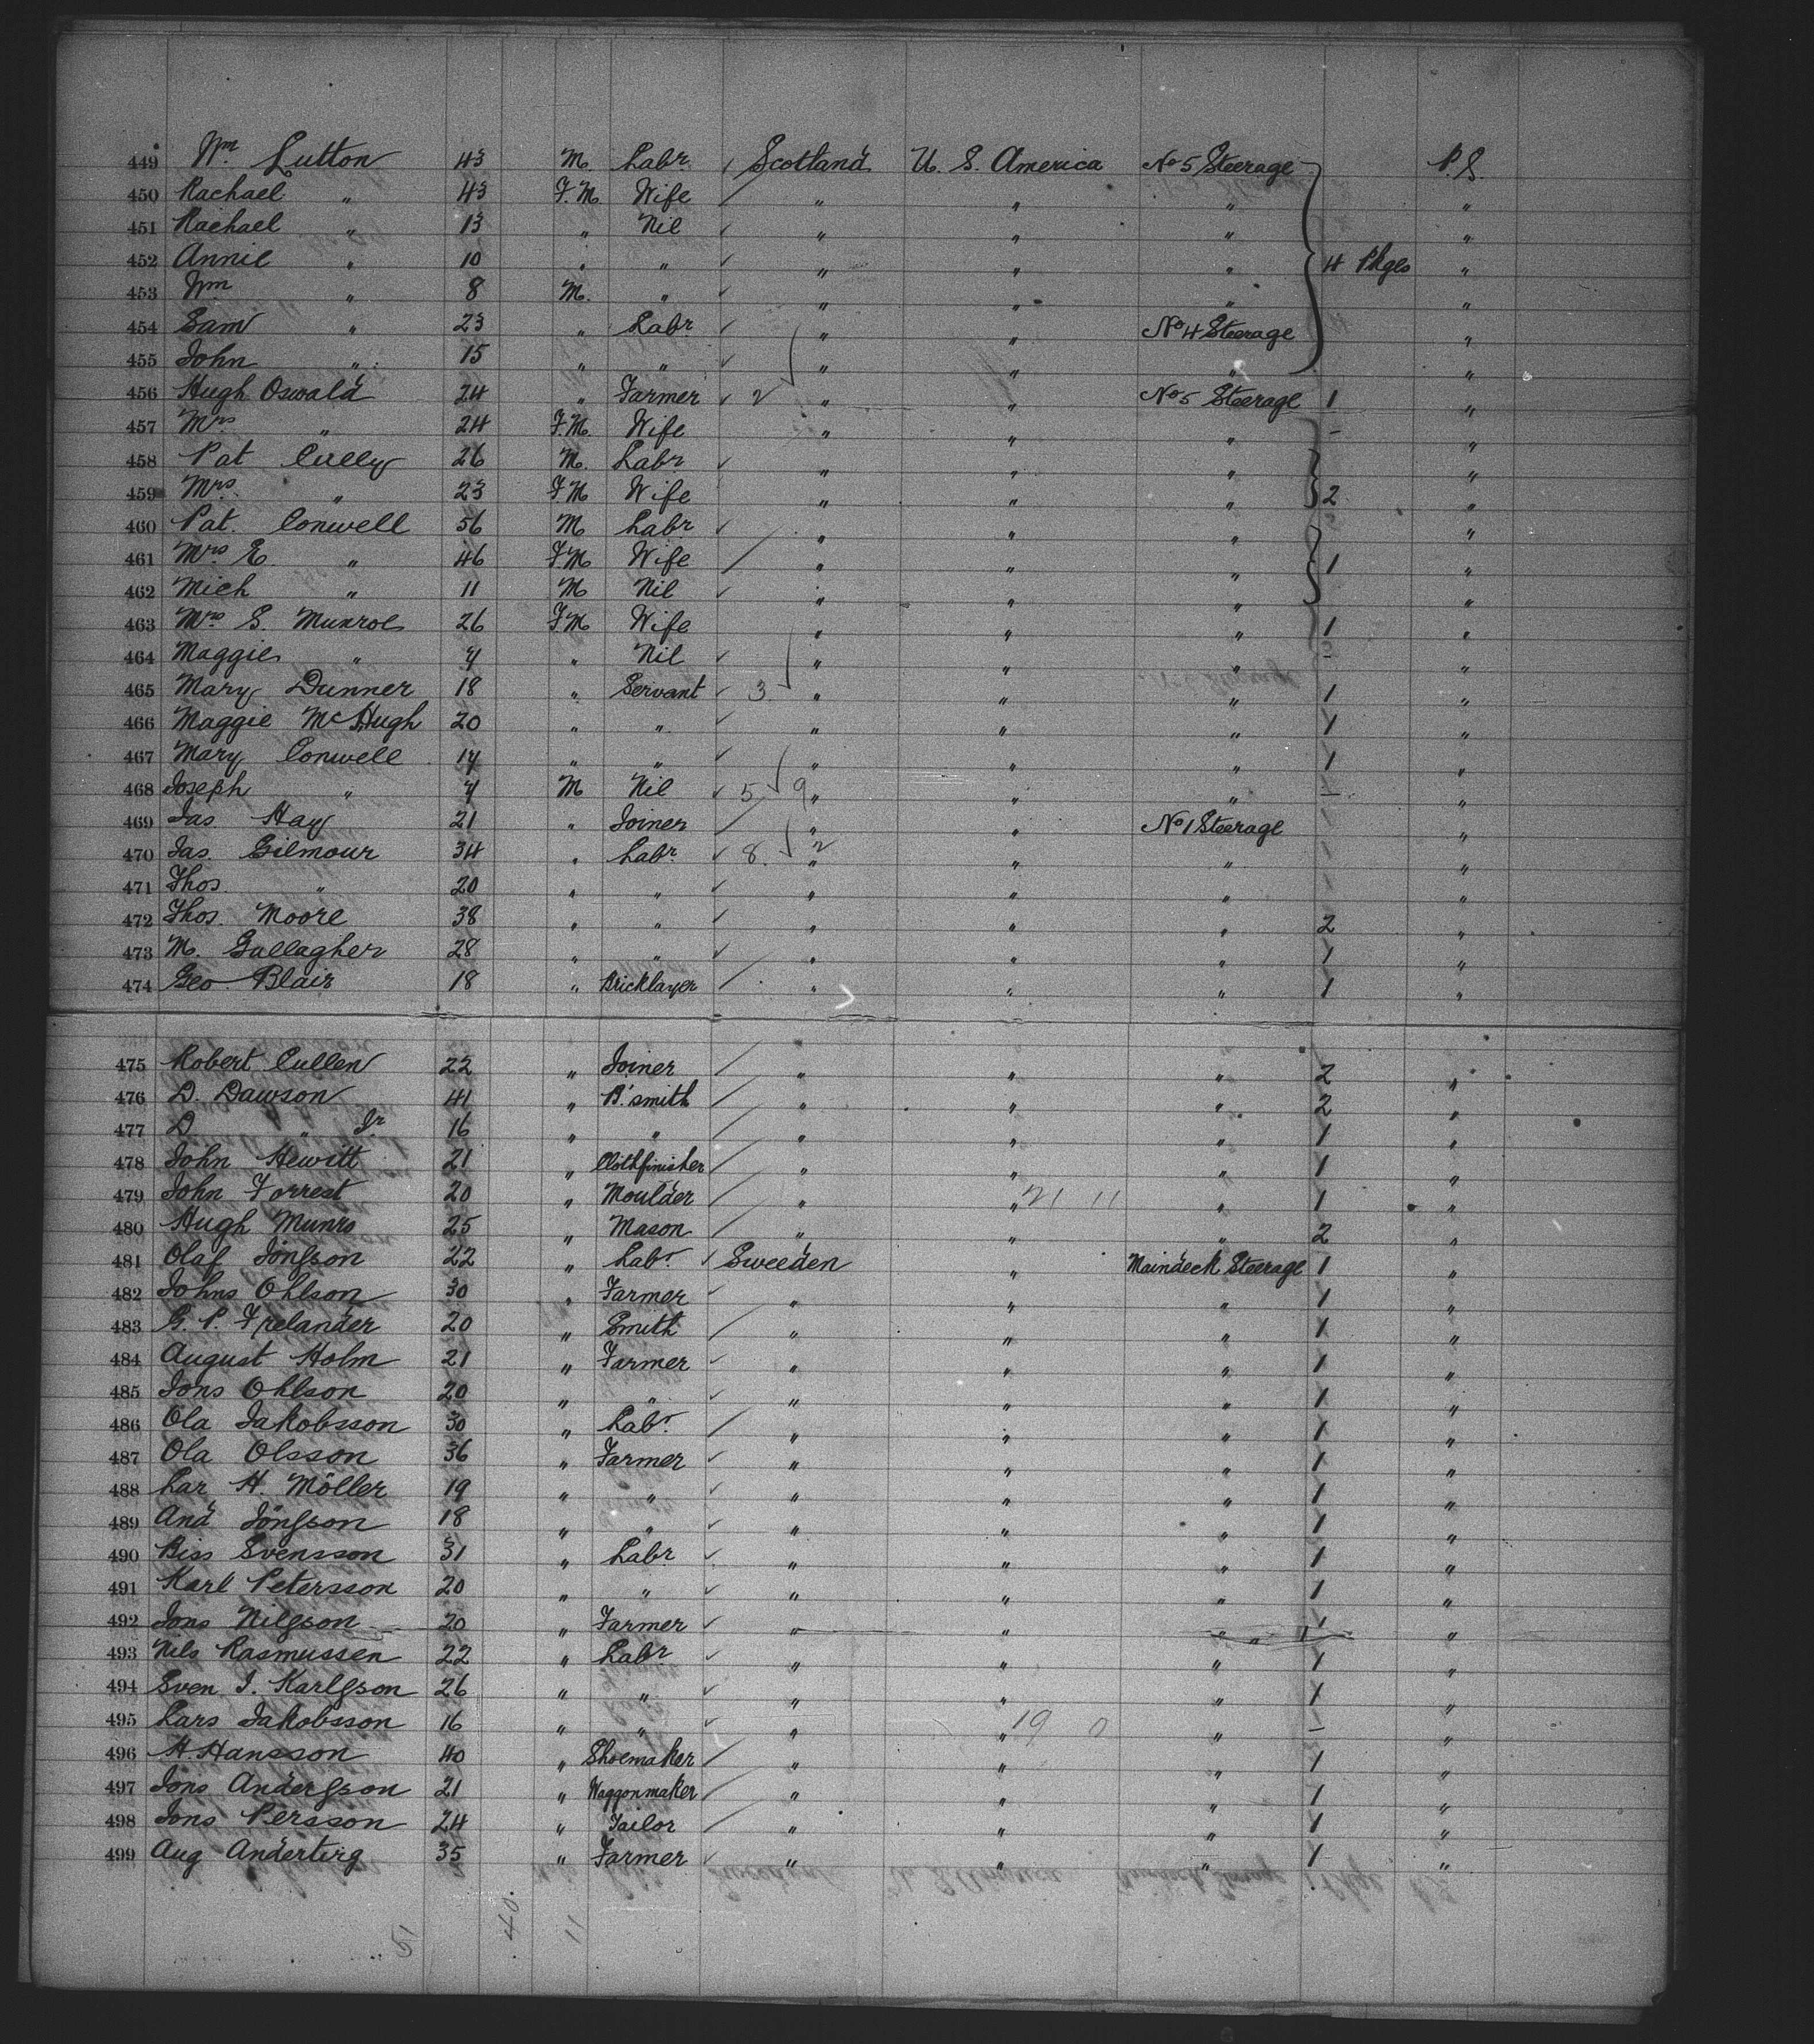 449 Wm. Lutton 43 M. Labr. ✓ Scotland U. S. America No 5 Steerage P. S.
450 Rachael " 43 F. M. Wife / " " " "
451 Rachael " 13 " Nil ✓ " " " "
452 Annie " 10 " " ✓ " " " 4 Pkges "
453 Wm " 8 M. " ✓ " " " "
454 Sam " 23 " Labr. ✓ " " No 4 Steerage "
455 John " 15 " " ✓ " " " "
456 Hugh Oswald 24 " Farmer ✓ 2 " " No 5 Steerage 1 "
457 Mrs " 24 F. M. Wife " " " - "
458 Pat Cully 26 M. Labr. ✓ " " " "
459 Mrs. " 23 F. M Wife " " " 2 "
460 Pat. Conwell 56 M Labr ✓ " " " "
461 Mrs E. " 46 F. M Wife / " " " 1 "
462 Mich " 11 M Nil ✓ " " " "
463 Mrs S. Munroe 26 F. M Wife " " " 1 "
464 Maggie " 4 " Nil ✓ " " " - "
465 Mary Dunner 18 " Servant ✓ 3 " " " 1 "
466 Maggie McHugh 20 " " ✓ " " " 1 "
467 Mary Conwell 14 " " ✓ " " " 1 "
468 Joseph " 4 M Nil ✓ 5 9 " " " - "
469 Jas. Hay 21 " Joiner / " " No 1 Steerage 1 "
470 Jas. Gilmour 34 " Labr. ✓ 8. 2 " " " 1 "
471 Thos. " 20 " " ✓ " " " 1 "
472 Thos. Moore 38 " " ✓ " " " 2 "
473 M. Gallagher 28 " " ✓ " " " 1 "
474 Geo. Blair 18 " Bricklayer / " " " 1 "
475 Robert Cullen 22 " Joiner / " " " 2 "
476 D. Dawson 41 " B'smith / " " " 2 "
477 D " Jr 16 " " / " " " 1 "
478 John Hewitt 21 " Clothfinisher / " " " 1 "
479 John Forrest 20 " Moulder / " " 21 11 " 1 "
480 Hugh Munro 25 " Mason / " " " 2 "
481 Olaf Jonsson 22 " Labr. ✓ Sweeden " Maindeck Steerage 1 "
482 Johns Ohlson 30 " Farmer ✓ " " " 1 "
483 G. P. Frelander 20 " Smith / " " " 1 "
484 August Holm 21 " Farmer ✓ " " " 1 "
485 Jons Ohlson 20 " " ✓ " " " 1 "
486 Ola Jakobsson 30 " Labr. / " " " 1 "
487 Ola Olsson 36 " Farmer ✓ " " " 1 "
488 Lar H. Möller 19 " " ✓ " " " 1 "
489 And Jönsson 18 " " ✓ " " " 1 "
490 Biss Svensson 31 " Labr ✓ " " " 1 "
491 Karl Petersson 20 " " ✓ " " " 1 "
492 Jons Nilsson 20 " Farmer ✓ " " " 1 "
493 Nils Rasmussen 22 " Labr. ✓ " " " 1 "
494 Sven J. Karlsson 26 " " ✓ " " " 1 "
495 Lars Jakobsson 16 " " ✓ " " 19 0 " - "
496 H. Hansson 40 " Shoemaker / " " " 1 "
497 Jons Andersson 21 " Waggonmaker / " " " 1 "
498 Jons Persson 24 " Tailor / " " " 1 "
499 Aug Andertirg 35 " Farmer ✓ " " " 1 "
40 11